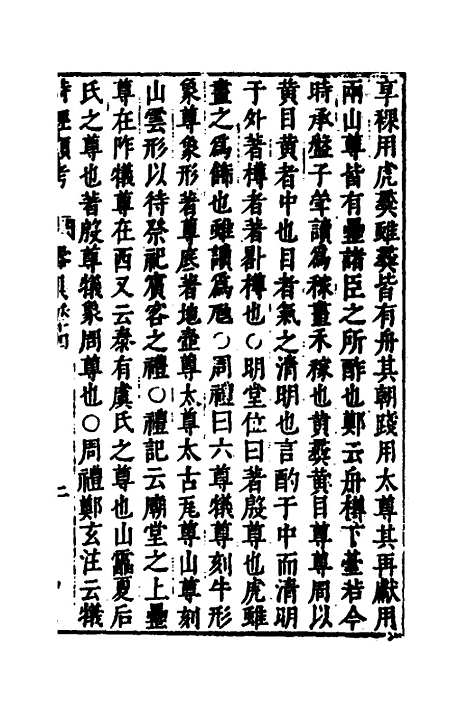 享稞用虎彜雖彜皆有舟其朝踐用太尊其再獻用
兩山尊皆有罍諸臣之所酢也鄭云舟樽下臺若今
時承盤子斈讀爲稼畫禾稼也黄彜黄目尊尊周以
黄目黄者中也目者氣之清明也言酌于中而清明
于外著樽者著卧樽也〇明堂位曰著殷尊也虎雖
畫之爲飾也雖讀爲虺〇周禮曰六尊犠尊刻牛形
象尊象形著尊底著地壺尊太尊太古瓦尊山尊刻
山雲形以待祭祀賓客之禮〇禮記云廟堂之上罍
尊在阼犠尊在西又云泰有虞氏之尊也山罍夏后
氏之尊也著殷尊犠象周尊也〇周禮鄭玄注云犠
詩經類考
二